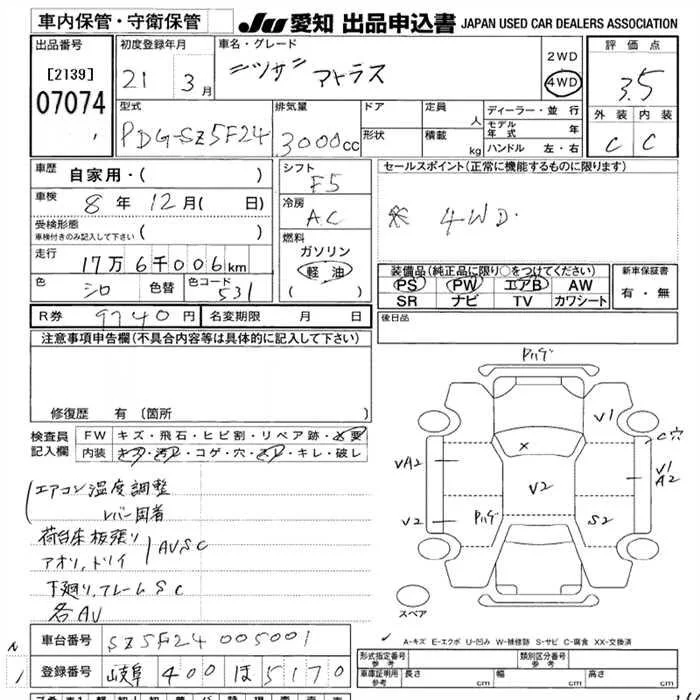 車内保管・守衛保管
JU 愛知 出品申込書 JAPAN USED CAR DEALERS ASSOCIATION
出品番号
[2139]
07074
初度登録年月
21 3月
車名・グレード
ニッサン アトラス
2WD
4WD
評価点
3.5
外装 内装
C C
型式
PDG-SZ5F24
排気量
3000cc
ドア
形状
定員 人
積載 kg
ディーラー・並行
モデル年式 年
ハンドル 左・右
車歴
自家用・( )
車検 8年12月( 日)
受検形態
車検付きのみ記入して下さい ( )
走行 17万6千006km
色 シロ 色替 色コード 531
シフト
F5
冷房
AC
燃料
ガソリン
軽油
( )
セールスポイント(正常に機能するものに限ります)
※ 4WD.
装備品(純正品に限り○をつけてください)
PS PW エアB AW
SR ナビ TV カワシート
新車保証書
有・無
R券 9740円 名変期限 月 日
後日品
注意事項申告欄(不具合内容等は具体的に記入して下さい)
修復歴 有 〔箇所
検査員
記入欄
FW キズ・飛石・ヒビ割・リペア跡・×要
内装 キズ・汚れ・コゲ・穴・スレ・キレ・破レ
エアコン温度調整
レバー固着
荷台床板張り
アオリ,トリイ AVSC
下廻り,フレームSC
各AV
Pハゲ
V1
C穴
VA2
V1
A2
×
V2
V2
Pハゲ
S2
スペア
A-キズ E-エクボ U-凹み W-補修跡 S-サビ C-腐食 XX-交換済
車台番号 SZ5F24 005001
登録番号 岐阜 400 ほ 5170
形式指定番号 参考
類別区分番号 参考
車庫証明用 参考 長さ cm 幅 cm 高さ cm